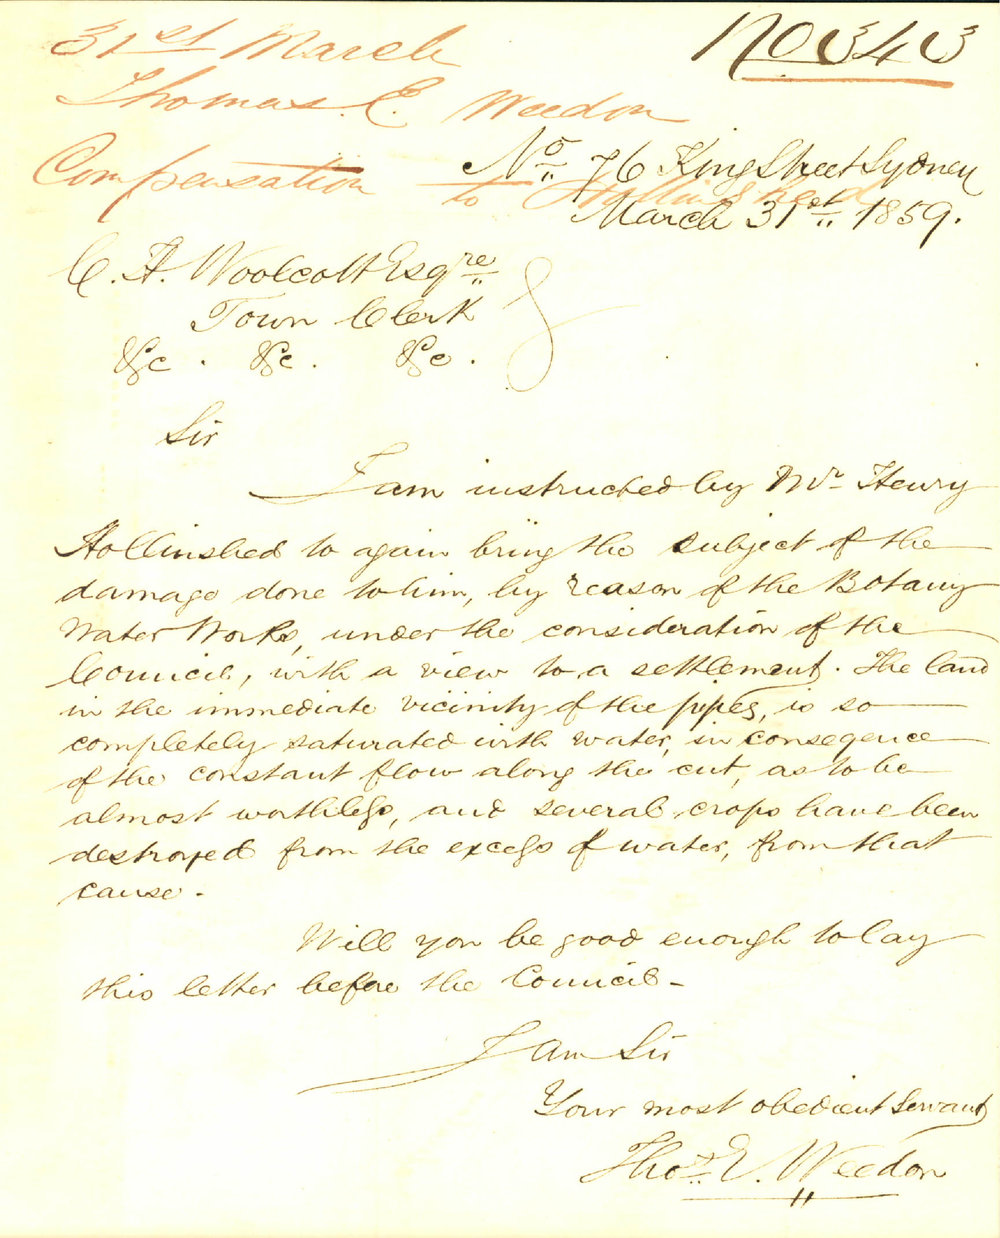 31st March
No 343
Thomas. E. Weedon
Compensation to Hollinshed
No. 76 King Street Sydney
March 31st. 1859.
C. H. Woolcott Esqre
Town Clerk
&c. &c. &c.
Sir
I am instructed by Mr Henry
Hollinshed to again bring the subject of the
damage done to him, by reason of the Botany
Water Works, under the consideration of the
Council, with a view to a settlement. The land
in the immediate vicinity of the pipes, is so
completely saturated with water, in conseqence
of the constant flow along the cut, as to be
almost worthless, and several crops have been
destroyed from the excess of water, from that
cause.
Will you be good enough to lay
this letter before the Council-
I am Sir
Your most obedient Servant
Thos. E. Weedon